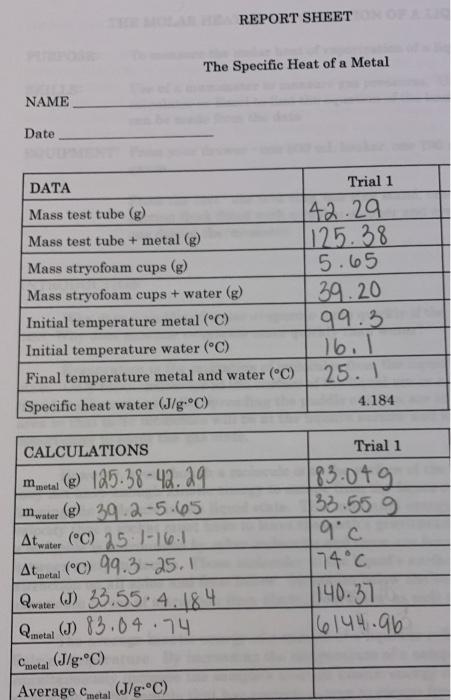 REPORT SHEET
The Specific Heat of a Metal
NAME
Date
DATA Trial 1
Mass test tube (g) 42.29
Mass test tube + metal (g) 125.38
Mass stryofoam cups (g) 5.65
Mass stryofoam cups + water (g) 39.20
Initial temperature metal (°C) 99.3
Initial temperature water (°C) 16.1
Final temperature metal and water (°C) 25.1
Specific heat water (J/g·°C) 4.184
CALCULATIONS Trial 1
m_metal (g) 125.38-42.29 83.04g
m_water (g) 39.2-5.65 33.55g
Δt_water (°C) 25.1-16.1 9°C
Δt_metal (°C) 99.3-25.1 74°C
Q_water (J) 33.55·4.184 140.37
Q_metal (J) 83.04·74 6144.96
c_metal (J/g·°C)
Average c_metal (J/g·°C)